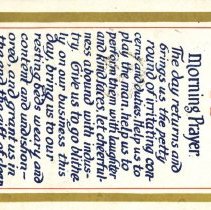 Morning Prayer:
The day returns and
brings us the petty
round of irritating con-
cerns and duties. Help us to
play the man help us to
perform them with
and kind faces let cheerful
ness abound with indus-
try. Give us to go blithe
ly on our business this
day, bring us to our
resting beds weary and
content and undishon-
ored and grant us in
the end the gift of sleep